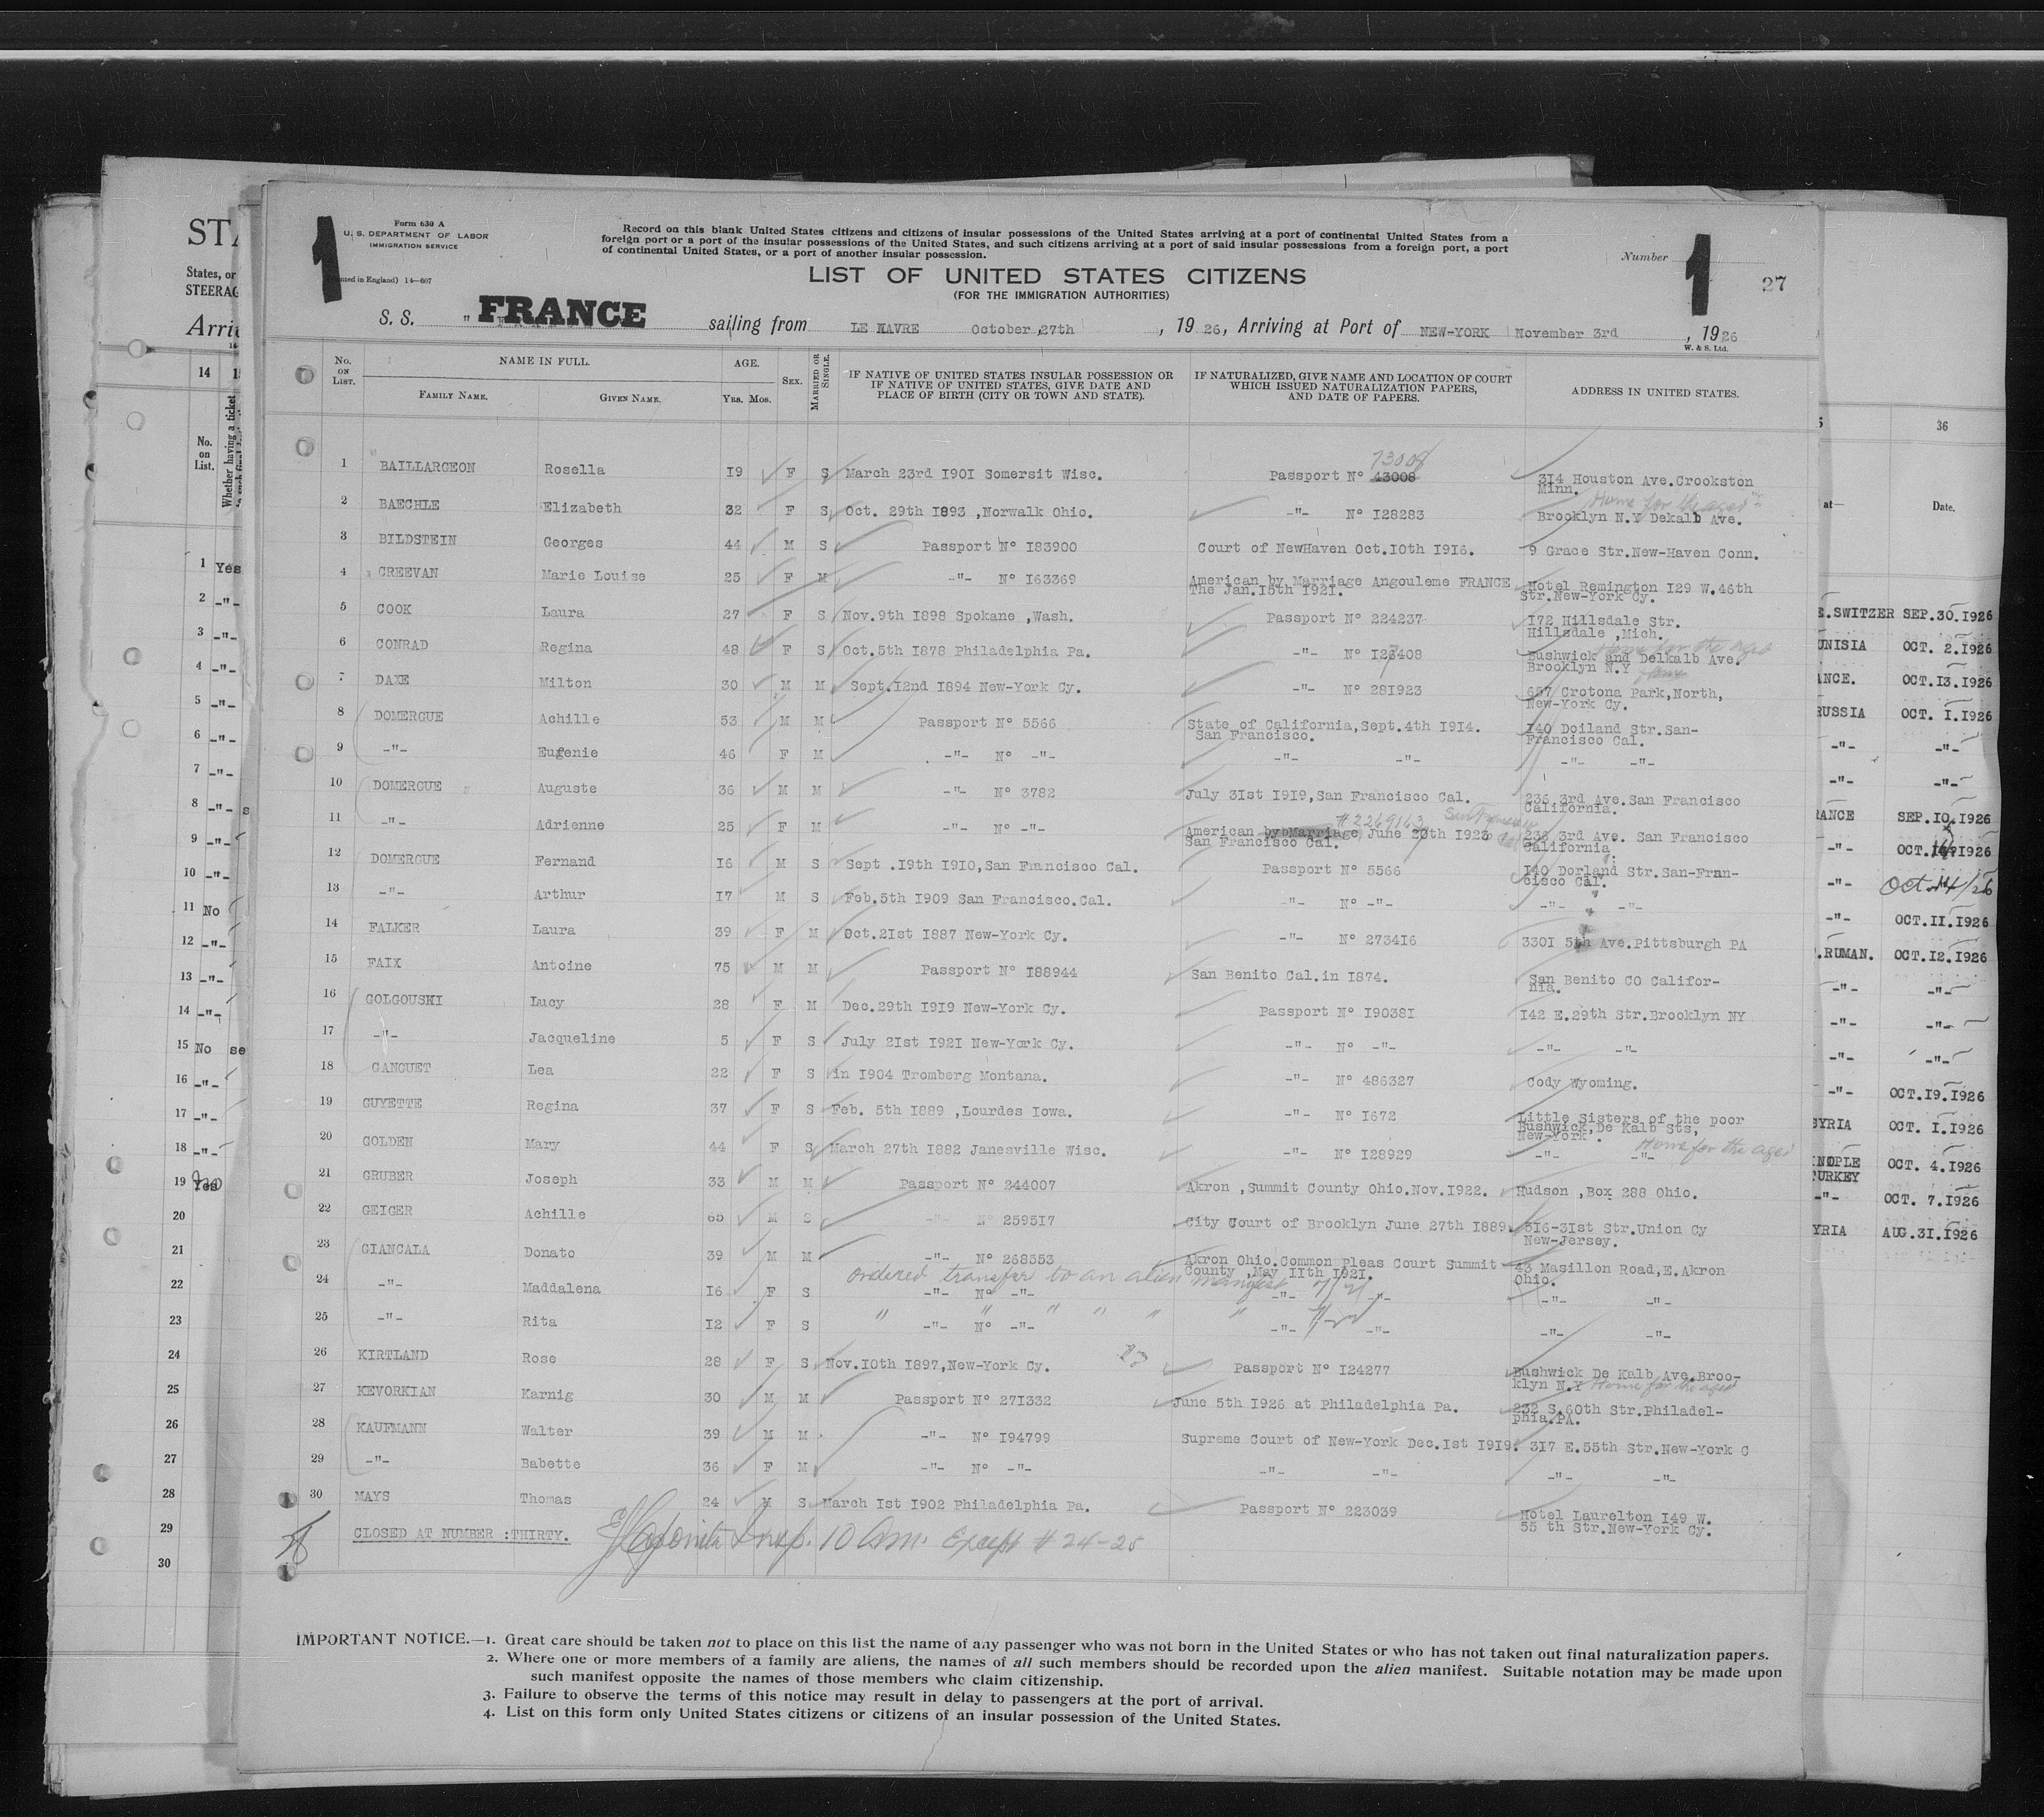 1
Form 630 A
U. S. DEPARTMENT OF LABOR
IMMIGRATION SERVICE
(Printed in England) 14—607
Record on this blank United States citizens and citizens of insular possessions of the United States arriving at a port of continental United States from a
foreign port or a port of the insular possessions of the United States, and such citizens arriving at a port of said insular possessions from a foreign port, a port
of continental United States, or a port of another insular possession.
Number 1
27
LIST OF UNITED STATES CITIZENS
(FOR THE IMMIGRATION AUTHORITIES)
S. S. " FRANCE sailing from LE HAVRE October,27th , 19 26, Arriving at Port of NEW-YORK November 3rd , 1926
W. & S. Ltd.
No. ON LIST. NAME IN FULL. FAMILY NAME. GIVEN NAME. AGE. Yrs. Mos. SEX. MARRIED OR SINGLE. IF NATIVE OF UNITED STATES INSULAR POSSESSION OR IF NATIVE OF UNITED STATES, GIVE DATE AND PLACE OF BIRTH (CITY OR TOWN AND STATE). IF NATURALIZED, GIVE NAME AND LOCATION OF COURT WHICH ISSUED NATURALIZATION PAPERS, AND DATE OF PAPERS. ADDRESS IN UNITED STATES.
1 BAILLARGEON Rosella I9 F S March 23rd I90I Somersit Wisc. Passport N° 43008 73008 3I4 Houston Ave.Crookston Minn.
2 BAECHLE Elizabeth 32 F S Oct. 29th I893 ,Norwalk Ohio. -"- N° I28283 Home for the aged Brooklyn N.Y Dekalb Ave.
3 BILDSTEIN Georges 44 M S Passport N° I83900 Court of NewHaven Oct.I0th I9I6. 9 Grace Str.New-Haven Conn.
4 CREEVAN Marie Louise 25 F M -"- N° I63369 American by Marriage Angouleme FRANCE The Jan.I5th I92I. Hotel Remington I29 W.46th Str.New-York Cy.
5 COOK Laura 27 F S Nov.9th I898 Spokane ,Wash. Passport N° 224237 I72 Hillsdale Str. Hillsdale ,Mich.
6 CONRAD Regina 48 F S Oct.5th I878 Philadelphia Pa. -"- N° Home for the aged Bushwick and Delkalb Ave. Brooklyn N.Y
7 DAXE Milton 30 M M Sept.I2nd I894 New-York Cy. -"- N° 28I923 657 Crotona Park,North, New-York Cy.
8 DOMERGUE Achille 53 M M Passport N° 5566 State of California,Sept.4th I9I4. San Francisco. I40 Doiland Str.San-Francisco Cal.
9 -"- Eugenie 46 F M -"- N° -"- -"- -"- -"- -"-
10 DOMERGUE Auguste 36 M M -"- N° 3782 July 3Ist I9I9,San Francisco Cal. 236 3rd Ave.San Francisco California.
11 -"- Adrienne 25 F M -"- N° -"- #2269163 San Francisco Cal American by Marriage, June 20th I923 San Francisco Cal. 238 3rd Ave. San Francisco California.
12 DOMERGUE Fernand I6 M S Sept .I9th I9I0,San Francisco Cal. Passport N° 5566 I40 Dorland Str.San-Francisco Cal.
13 -"- Arthur I7 M S Feb.5th I909 San Francisco.Cal. -"- N° -"- -"- -"-
14 FALKER Laura 39 F M Oct.2Ist I887 New-York Cy. -"- N° 2734I6 330I 5th Ave.Pittsburgh PA
15 FAIX Antoine 75 M M Passport N° I88944 San Benito Cal.in I874. San Benito CO California.
16 GOLGOUSKI Lucy 28 F M Dec.29th I9I9 New-York Cy. Passport N° I9038I I42 E.29th Str.Brooklyn NY
17 -"- Jacqueline 5 F S July 2Ist I92I New-York Cy. -"- N° -"- -"- -"-
18 GANGUET Lea 22 F S in I904 Tromberg Montana. -"- N° 486327 Cody Wyoming.
19 GUYETTE Regina 37 F S Feb. 5th I889 ,Lourdes Iowa. -"- N° I672 Little Sisters of the poor Bushwick,De Kalb Sts, New-York .
20 GOLDEN Mary 44 F S March 27th I882 Janesville Wisc. -"- N° I28929 -"- -"- Home for the aged
21 GRUBER Joseph 33 M M Passport N° 244007 Akron ,Summit County Ohio.Nov.I922. Hudson ,Box 288 Ohio.
22 GEIGER Achille 65 M S -"- N° 2595I7 City Court of Brooklyn June 27th I889. 5I6-3Ist Str.Union Cy New-Jersey.
23 GIANCALA Donato 39 M M -"- N° 268353 Akron Ohio.Common Pleas Court Summit County ,May IIth I92I. 43 Masillon Road,E.Akron Ohio.
24 -"- Maddalena I6 F S ordered transfer to an alien manifest -"- N° -"- -"- -"- -"- -"-
25 -"- Rita I2 F S " " " " " " -"- N° -"- -"- -"- -"- -"-
26 KIRTLAND Rose 28 F S Nov.I0th I897,New-York Cy. Passport N° I24277 Bushwick De Kalb Ave.Brooklyn N.Y Home for the aged
27 KEVORKIAN Karnig 30 M M Passport N° 27I332 June 5th I926 at Philadelphia Pa. 232 S.60th Str.Philadelphia.PA.
28 KAUFMANN Walter 39 M M -"- N° I94799 Supreme Court of New-York Dec.Ist I9I9. 3I7 E.55th Str.New-York C
29 -"- Babette 36 F M -"- N° -"- -"- -"- -"- -"-
30 MAYS Thomas 24 M S March Ist I902 Philadelphia Pa. Passport N° 223039 Hotel Laurelton I49 W. 55 th Str.New-York Cy.
CLOSED AT NUMBER :THIRTY. Insp. 10 Am. Except # 24-25
IMPORTANT NOTICE.—1. Great care should be taken not to place on this list the name of any passenger who was not born in the United States or who has not taken out final naturalization papers.
2. Where one or more members of a family are aliens, the names of all such members should be recorded upon the alien manifest. Suitable notation may be made upon
such manifest opposite the names of those members who claim citizenship.
3. Failure to observe the terms of this notice may result in delay to passengers at the port of arrival.
4. List on this form only United States citizens or citizens of an insular possession of the United States.
States, or
STEERAG
14
No. on List.
Whether having a ticket
1 Yes
2 -"-
3 -"-
4 -"-
5 -"-
6 -"-
7 -"-
8 -"- s
9 -"-
10 -"-
11 No
12 -"-
13 -"-
14 -"-
15 No se
16 -"-
17 -"-
18 -"-
19 Yes no
20
21
22
23
24
25
26
27
28
29
30
36
at— Date.
E.SWITZER SEP.30.I926
UNISIA OCT. 2.I926
ANCE. OCT.I3.I926
RUSSIA OCT. I.I926
-"- -"-
-"- -"-
RANCE SEP.I0.I926
-"- OCT. I926
-"- Oct 14/26
-"- OCT.II.I926
.RUMAN. OCT.I2.I926
-"- -"-
-"- -"-
-"- -"-
-"- OCT.I9.I926
SYRIA OCT. I.I926
NOPLE OCT. 4.I926
TURKEY
-"- OCT. 7.I926
YRIA AUG.3I.I926